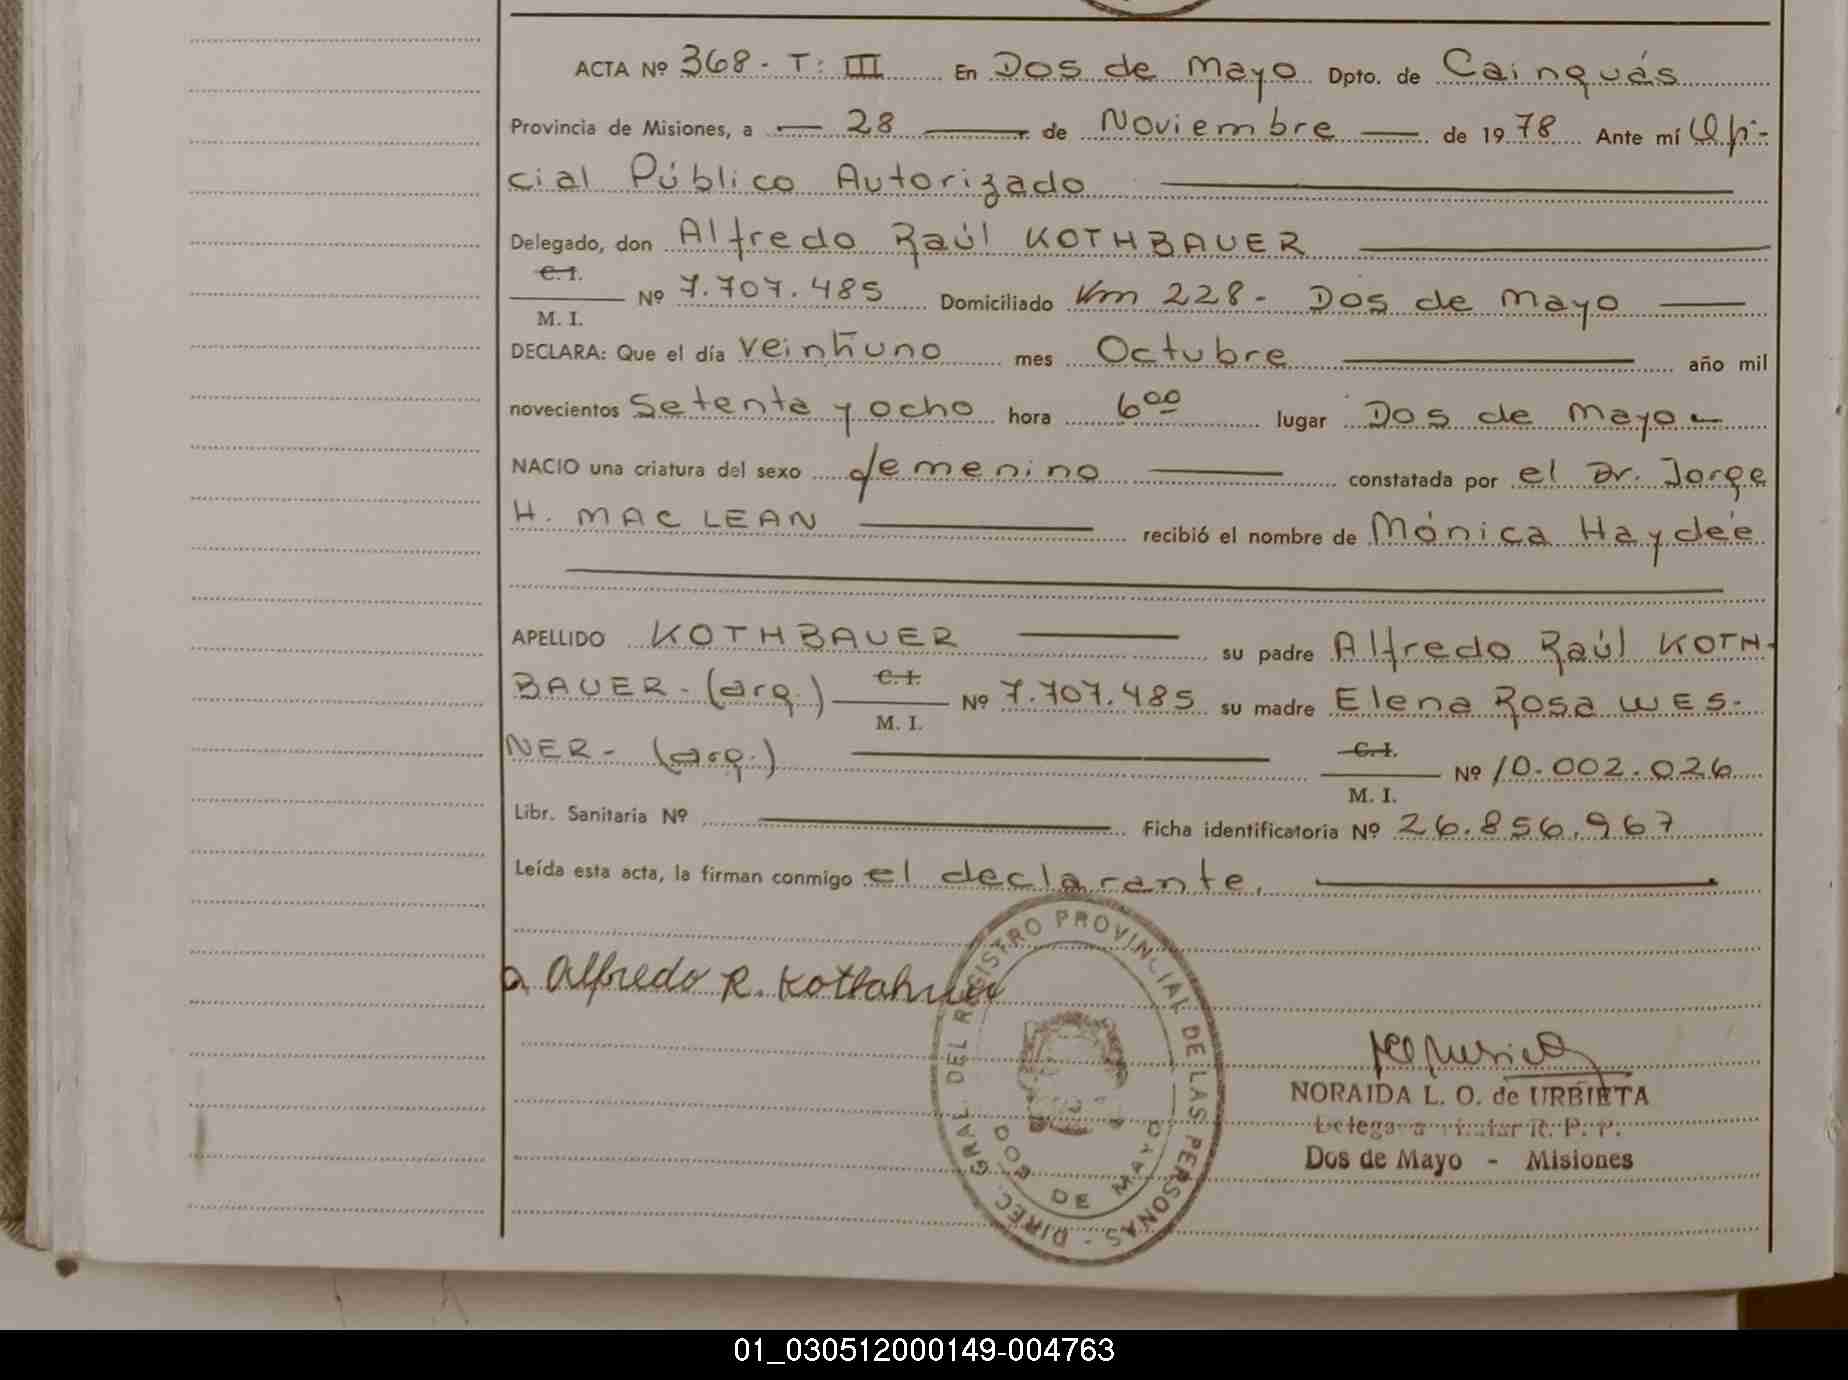 ACTA Nº 368. T: III En Dos de Mayo Dpto. de Cainguás
Provincia de Misiones, a — 28 — de Noviembre — de 1978 Ante mí Ofi-
cial Público Autorizado
Delegado, don Alfredo Raúl KOTHBAUER
C.I.
M. I. Nº 7.707.485 Domiciliado Km 228- Dos de Mayo
DECLARA: Que el día veintiuno mes Octubre año mil
novecientos setenta y ocho hora 6⁰⁰ lugar Dos de Mayo
NACIO una criatura del sexo femenino constatada por el Dr. Jorge
H. MAC LEAN recibió el nombre de Mónica Haydée
APELLIDO KOTHBAUER su padre Alfredo Raúl KOTH-
BAUER- (arg.) C.I. M. I. Nº 7.707.485 su madre Elena Rosa WES-
NER- (arg.) C.I. M. I. Nº 10.002.026
Libr. Sanitaria Nº Ficha identificatoria Nº 26.856.967
Leída esta acta, la firman conmigo el declarante.
Alfredo R. Kothbauer
DIREC. GRAL. DEL REGISTRO PROVINCIAL DE LAS PERSONAS -
DOS DE MAYO
NORAIDA L. O. de URBIETA
Delegada Titular R. P. P.
Dos de Mayo - Misiones
01_030512000149-004763